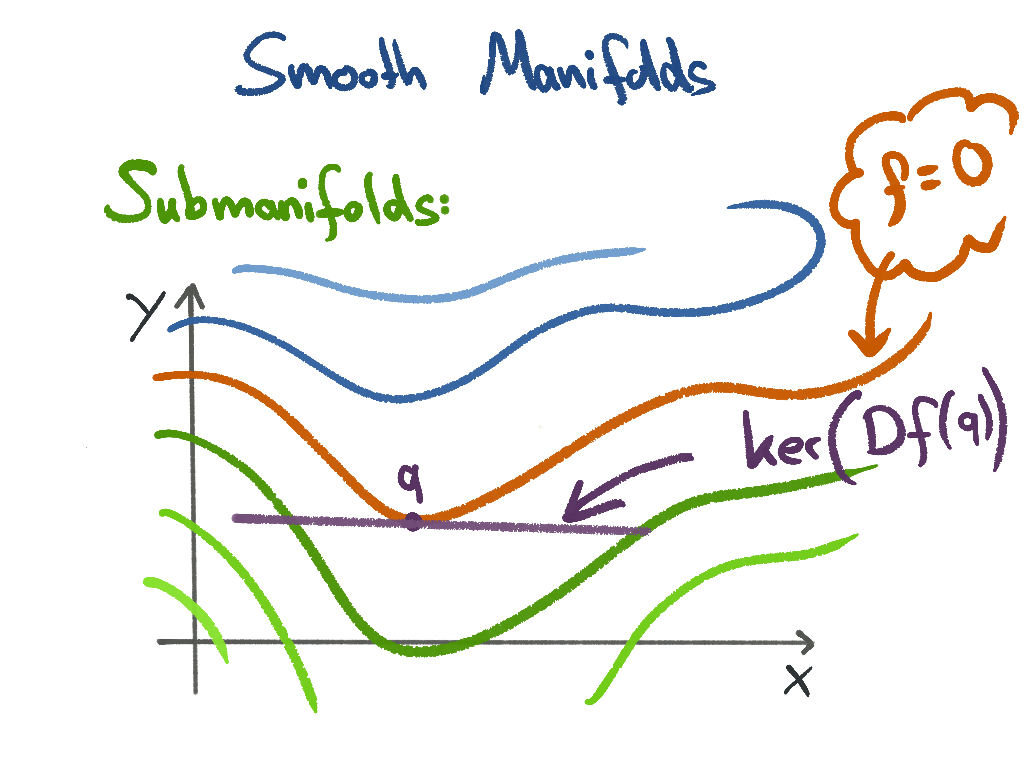 Smooth Manifolds
Submanifolds:
f=0
y
ker(Df(q))
q
x